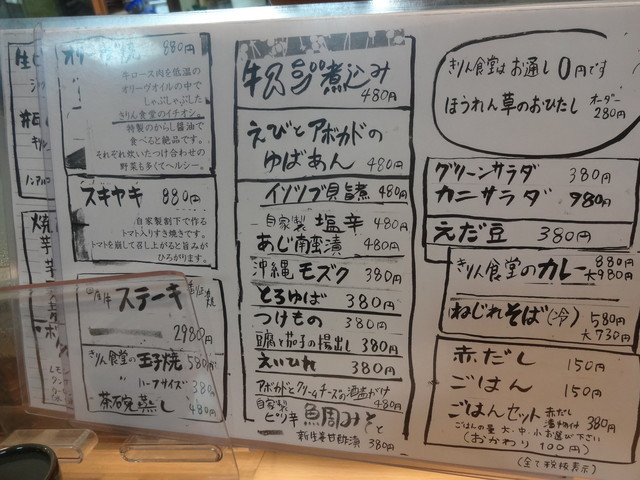 880円
牛ロース肉を低温の
オリーヴオイルの中で
しゃぶしゃぶした
きりん食堂のイチオシ。
特製のからし醤油で
食べると絶品です。
それぞれ炊いたつけ合わせの
野菜も多くてヘルシー。
スキヤキ 880円
自家製割下で作る
トマト入りすき焼きです。
トマトを崩して召し上がると旨みが
ひろがります。
ステーキ
2980円
きりん食堂の玉子焼 580円
〃 ハーフサイズ 380円
茶碗蒸し 480円
煮込み
480円
えびとアボカドの
ゆばあん 480円
イソツブ貝旨煮 480円
自家製 塩辛 480円
あじ南蛮漬 480円
沖縄モズク 380円
とろゆば 380円
つけもの 380円
豆腐と茄子の揚出し 380円
えいひれ 380円
アボカドとクリームチーズの酒盗がけ
480円
自家製
ピリ辛
380円
きりん食堂はお通し0円です
ほうれん草のおひたし オーダー
280円
グリーンサラダ 380円
カニサラダ 980円
えだ豆 380円
きりん食堂のカレー 880円
大980円
ねじれそば(冷) 580円
大730円
赤だし 150円
ごはん 150円
ごはんセット 赤だし
漬物付 380円
ごはんの量 大・中・小お選び下さい
(おかわり100円)
(全て税抜表示)